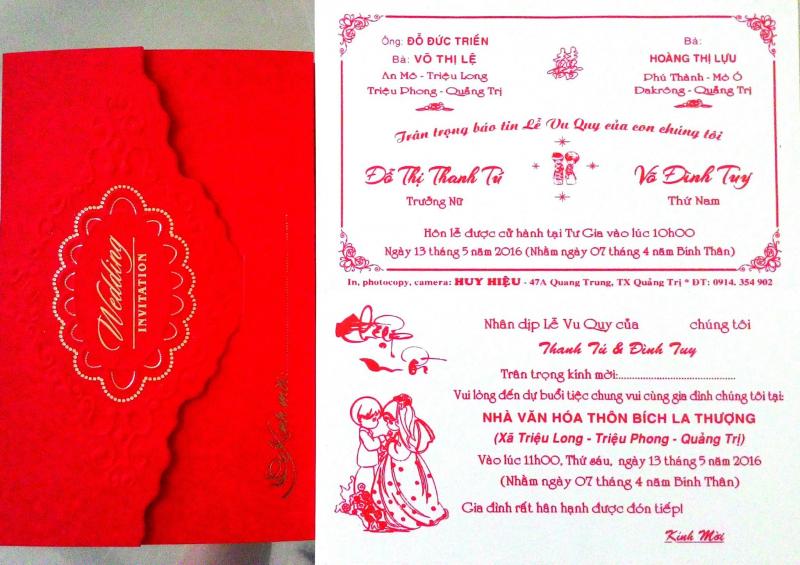 Wedding
INVITATION
Kính mời:
Ông: ĐỖ ĐỨC TRIỂN
Bà: VÕ THỊ LỆ
An Mô - Triệu Long
Triệu Phong - Quảng Trị
囍
Bà:
HOÀNG THỊ LỰU
Phú Thành - Mò Ó
Dakrông - Quảng Trị
Trân trọng báo tin Lễ Vu Quy của con chúng tôi
Đỗ Thị Thanh Tú
Trưởng Nữ
Võ Đình Tuy
Thứ Nam
Hôn lễ được cử hành tại Tư Gia vào lúc 10h00
Ngày 13 tháng 5 năm 2016 (Nhằm ngày 07 tháng 4 năm Bính Thân)
In, photocopy, camera: HUY HIỆU - 47A Quang Trung, TX Quảng Trị * ĐT: 0914. 354 902
Nhân dịp Lễ Vu Quy của chúng tôi
Thanh Tú & Đình Tuy
Trân trọng kính mời:
Vui lòng đến dự buổi tiệc chung vui cùng gia đình chúng tôi tại:
NHÀ VĂN HÓA THÔN BÍCH LA THƯỢNG
(Xã Triệu Long - Triệu Phong - Quảng Trị)
Vào lúc 11h00, Thứ sáu, ngày 13 tháng 5 năm 2016
(Nhằm ngày 07 tháng 4 năm Bính Thân)
Gia đình rất hân hạnh được đón tiếp!
Kính Mời